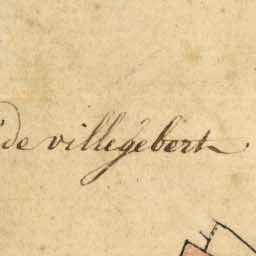 de villegebert